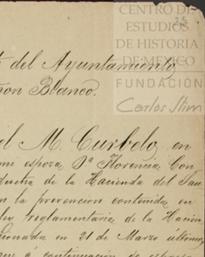 CENTRO DE
ESTUDIOS
DE HISTORIA
DE MÉXICO
FUNDACIÓN
Carlos Slim
del Ayuntamiento
Blanco.
el M. Curbelo, en
mi esposa, Dª Florencia Con
de la Hacienda del San
la prevencion contenida en
reglamentaria de la Hacien
en 21 de Marzo último,
á continuacion se espresa